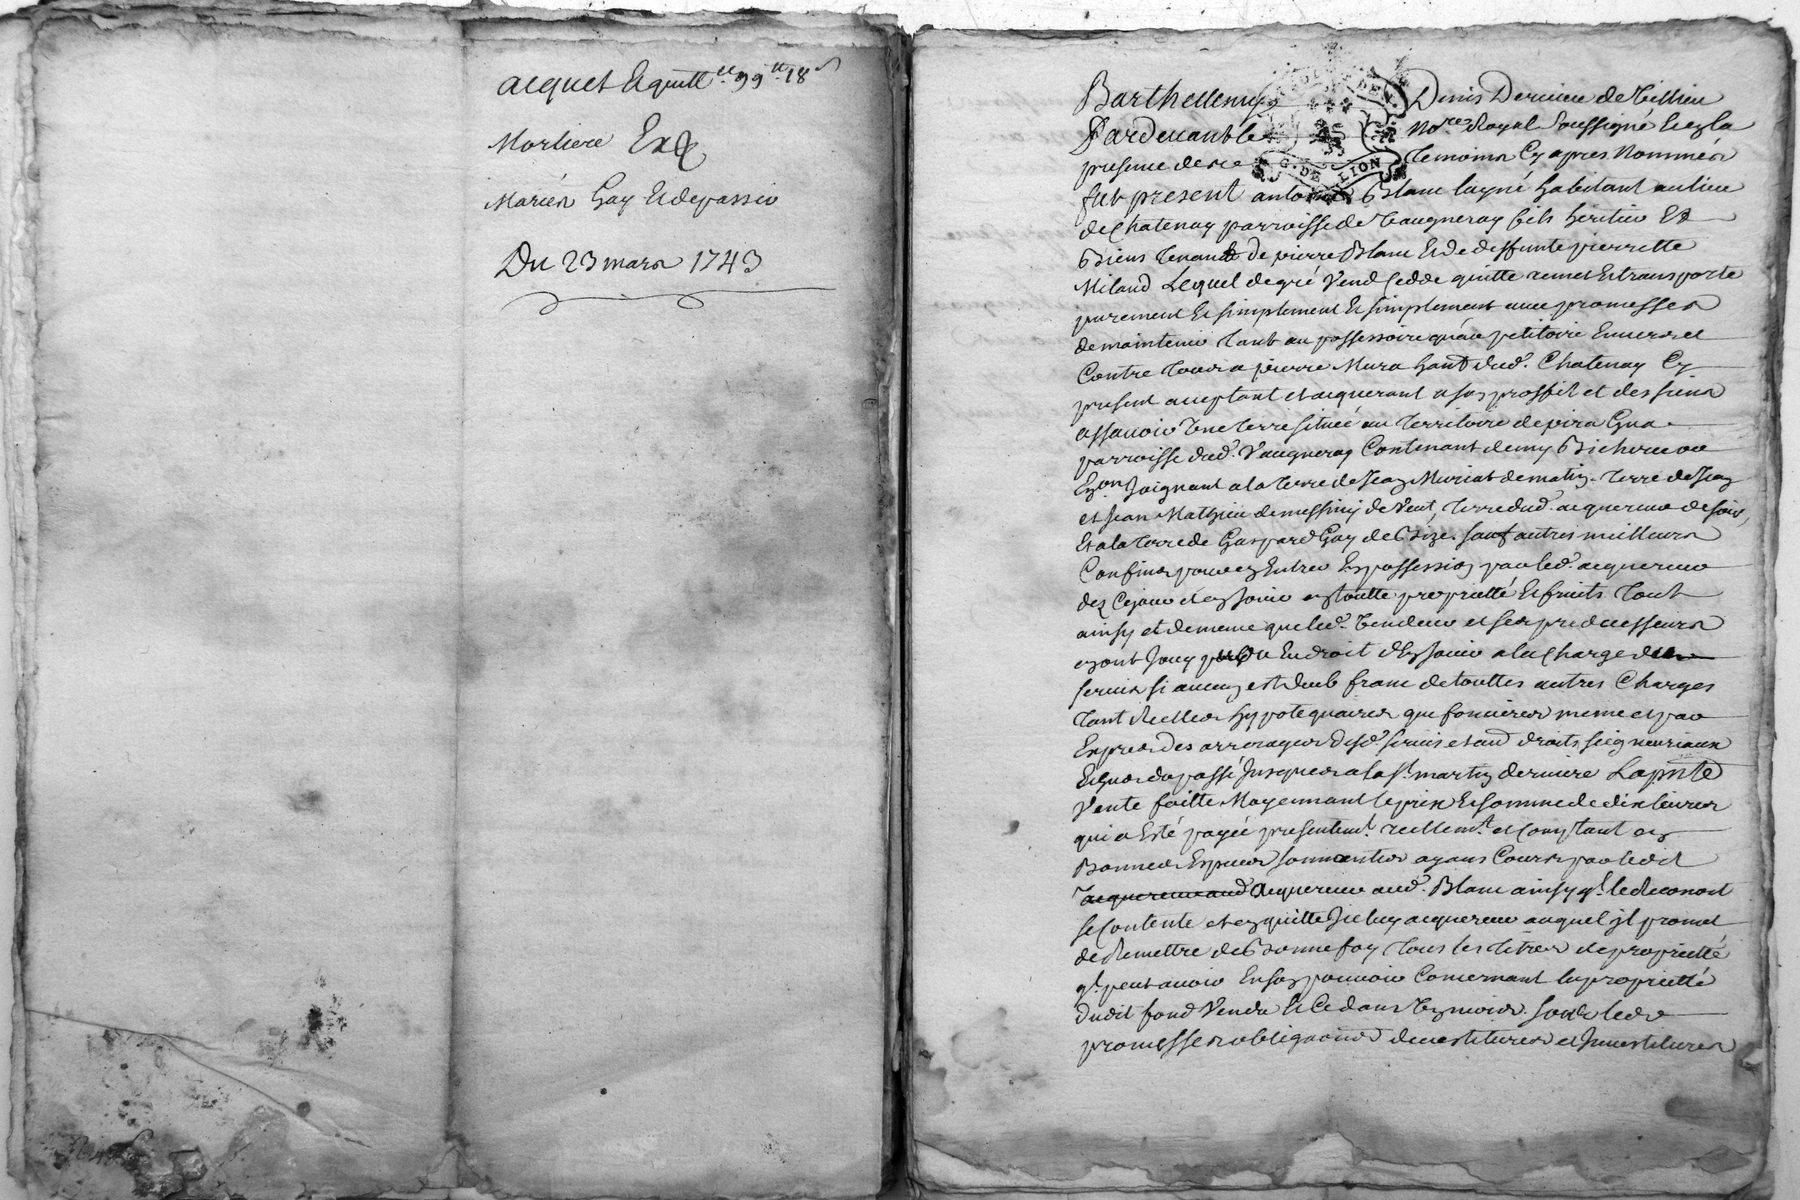 acquet & quitt.ce 99 tt 18 s
Morliere Exp
Marién Gay & depassio
Du 23 mars 1743
Barthellemy Denis Dervieu de Villieu
Pardevant le No.re Royal soussigné & en la
presence de ce temoins cy apres nommés
fut present antoine Blanc layné habitant au lieu
de Chatenay parroisse de Vaugneray fils heritier &
Biens tenant de pierre Blanc & de deffunte pierrette
Miland Lequel de gré Vend cedde quitte remet & transporte
purement & simplement & simplement avec promesses
de maintenir tant au possessoire qu'au petitoire Envers et
Contre tous a pierre Mura hant dud. Chatenay Cy
present acceptant et acquerant a son proffit et des siens
assavoir Une terre située au territoire de pira
parroisse dud. Vaugneray Contenant demy Bicheree ou
Environ Joignant a la terre de Jean Muriat de matin. terre de Jean
et Jean Mathieu de messimy de Vent, terre dud. acquereur de soir,
Et a la terre de Gaspard Gay de Bize. sauf autres meilleurs
Confins pour en Entrer En possession par led. acquereur
dez Cejourd'huy Jouir en toutte proprietté & fruits tout
ainsy et de meme que led. Vendeur et ses predecesseurs
en ont Jouy Eu droit d'En Jouir a la Charge des
servis si aucun est deub franc de touttes autres Charges
tant Reelles hypotequaires que foncieres meme et par
Exprès des arrerages desd. servis et aud droits seigneuriaux
Echus du passé Jusques a la St. martin derniere La pnte
Vente faitte Moyennant le prix & somme de dix livres
qui a Esté payée presentem.t reellem.t et Comptant en
Bonnes Especes sonnantes ayans Cours par ledit
acquereur aud acquereur aud. Blanc ainsy q.l le Reconoit
se Contente et en quitte Jceluy acquereur auquel jl promet
de Remettre de Bonne foy tous les titres de proprietté
q.l peut avoir En son pouvoir Concernant la proprietté
dudit fond Vendu & Ce dans Sous les
promesses obligations devestitures et Jnvestitures
G. DE LION